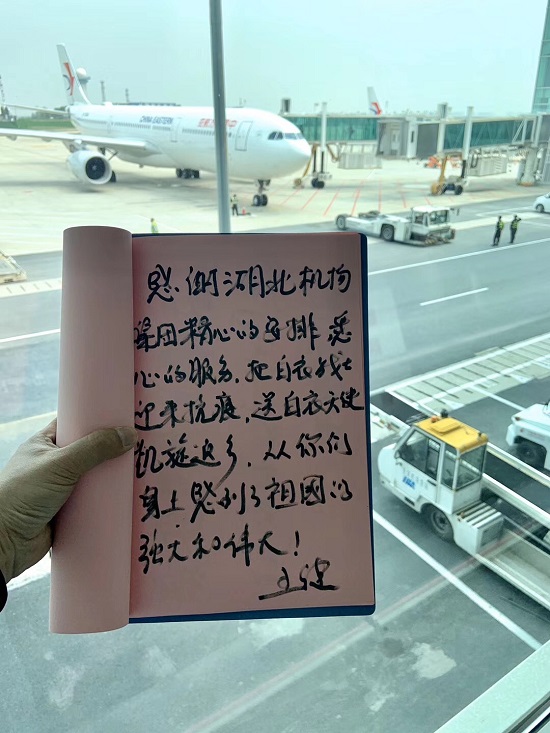 CHINA EASTERN
感谢湖北机场
集团精心的安排悉
心的服务，把白衣战士
迎来抗疫，送白衣天使
凯旋返乡，从你们
身上感到了祖国的
强大和伟大！